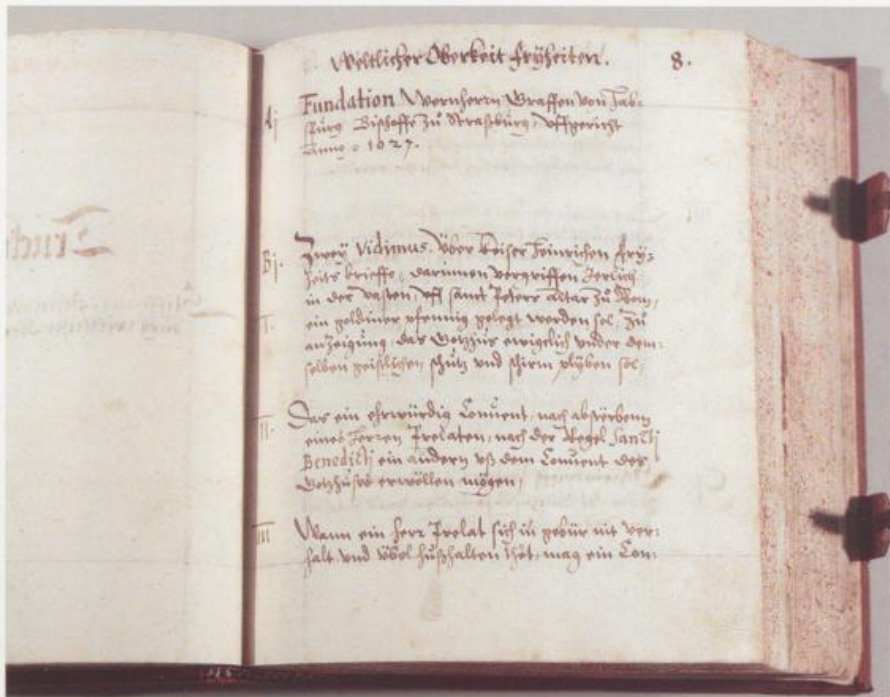 Weltlicher Oberkeit fryheiten. 8.
Aj Fundation Wernherrn Graffen von Hab:
spurg Bischoffs zů Straßburg, vffgericht
Anno 1027.
Bj. Zwey Vidimus. Vber Keiser Heinrichen fry:
heits brieffe, darinnen vergriffen Jerlich
in der vasten, vff sanct Peters altar zů Rom,
I. ein goldiner pfennig gelegt werden sol, zů
anzeigung, das Gotzhus ewigclich vnder dem:
selben geistlichen schutz vnd schirm plyben sol,
Das ein ehrwürdig Conuent, nach absterbenn
II. eines Herren Prelaten, nach der Regel Sancti
Benedicti ein andern vß dem Conuent des
Gotzhuses erwöllen mögen,
III Wann ein Herr Prelat sich in gebür nit ver:
halt vnd übel hußhalten thet, mag ein Con: